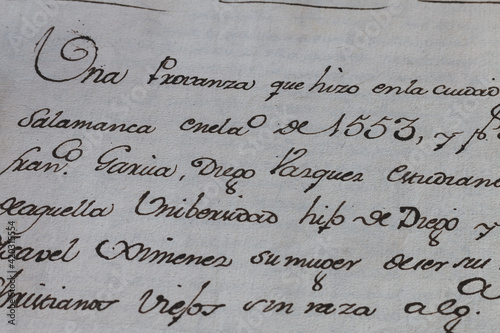 Una Provanza que hizo enla ciudad
Salamanca enel a.º de 1553, y p.r
Fran.co Garcia, Diego Vazquez estudian
deaquella Unibersidad hijo de Diego y
savel Ximenez su muger de ser sus
Cristianos Viejos sin raza alg.a